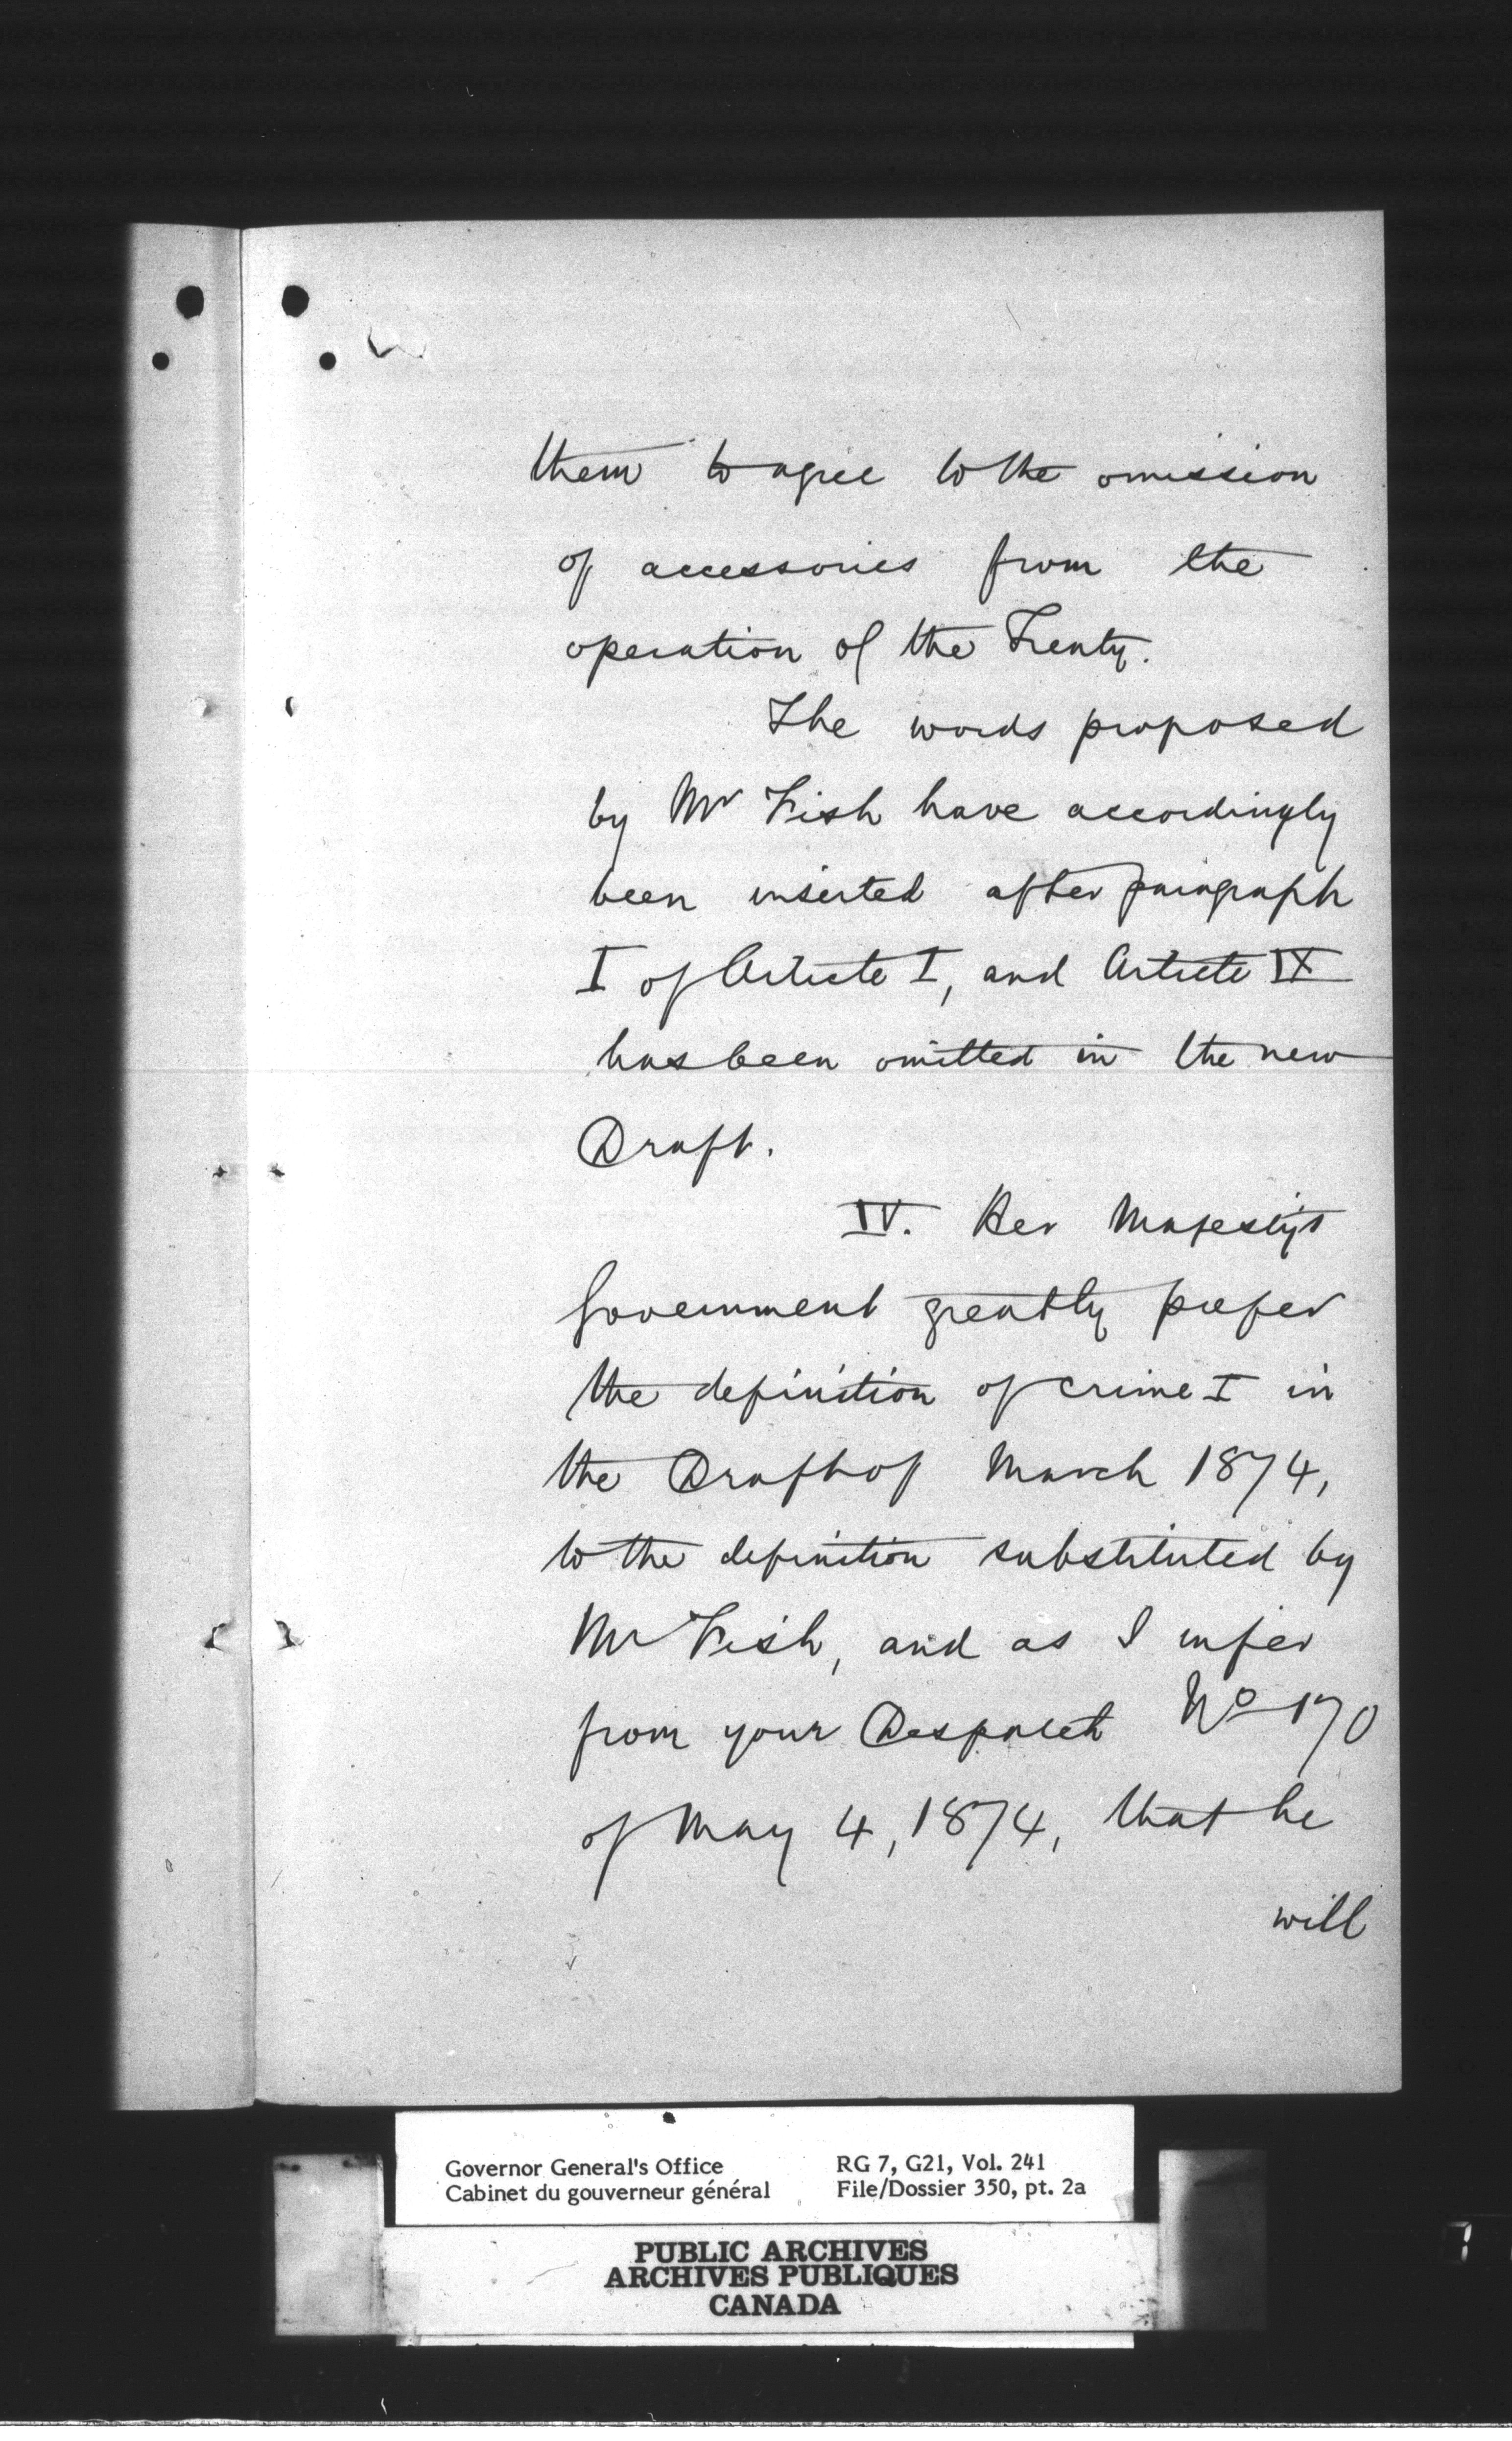 them to agree to the omission
of accessories from the
operation of the Treaty.
The words proposed
by Mr Fish have accordingly
been inserted after paragraph
I of Article I, and Article IX
has been omitted in the new
Draft.
IV. Her Majesty's
Government greatly prefer
the definition of crime I in
the Draft of March 1874,
to the definition substituted by
Mr Fish, and as I infer
from your Despatch No 170
of May 4, 1874, that he
will
Governor General's Office
Cabinet du gouverneur général
RG 7, G21, Vol. 241
File/Dossier 350, pt. 2a
PUBLIC ARCHIVES
ARCHIVES PUBLIQUES
CANADA